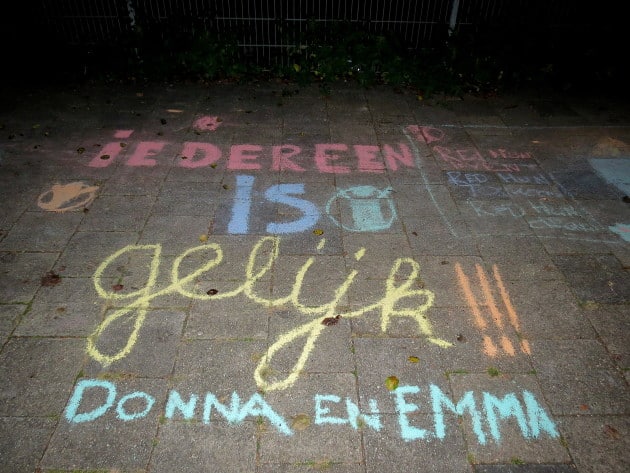 iEDEREEN
IS
gelijk!!!
DONNA EN EMMA